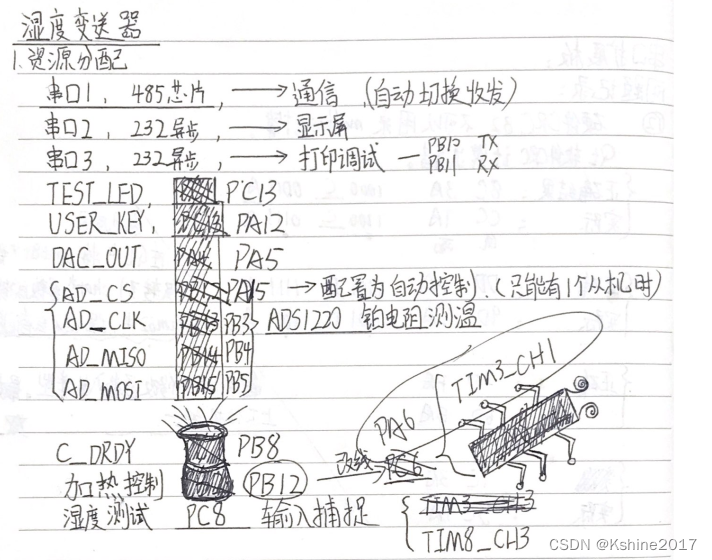 湿度变送器
1.资源分配
串口1, 485芯片, → 通信 (自动切换收发)
串口2, 232异步, → 显示屏
串口3, 232异步, → 打印调试 — PB10 TX
PB11 RX
TEST_LED, PC13
USER_KEY, PA12
DAC_OUT PA5
AD_CS PA15 → 配置为自动控制.(只能有1个从机时)
AD_CLK PB3 ADS1220 铂电阻测温
AD_MISO PB4
AD_MOSI PB5
TIM3_CH1
PA6
C_DRDY PB8
改线
加热控制 PB12
湿度测试 PC8 输入捕捉
TIM3_CH3
TIM8_CH3
CSDN @Kshine2017